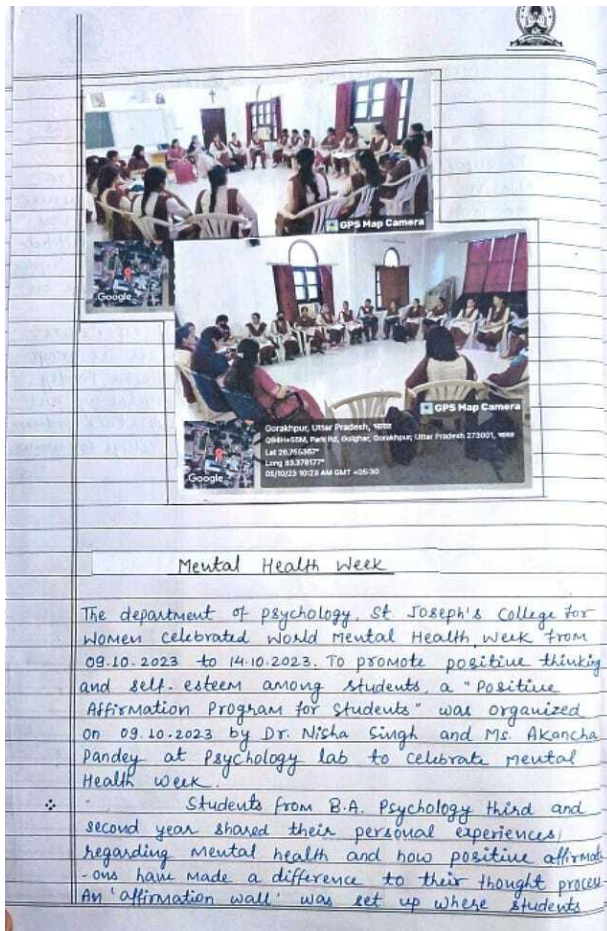 GPS Map Camera
Google
GPS Map Camera
Gorakhpur, Uttar Pradesh, भारत
Q94H+S5M, Park Rd, Golghar, Gorakhpur, Uttar Pradesh 273001, भारत
Lat 26.755367°
Long 83.378177°
05/10/23 10:29 AM GMT +05:30
Google
Mental Health Week
The department of psychology, St. Joseph's College for
Women celebrated World Mental Health Week from
09.10.2023 to 14.10.2023. To promote positive thinking
and self-esteem among students, a "Positive
Affirmation Program for Students" was organized
on 09.10.2023 by Dr. Nisha Singh and Ms. Akancha
Pandey at Psychology lab to celebrate Mental
Health Week.
Students from B.A. Psychology third and
second year shared their personal experiences
regarding Mental health and how positive affirmati
-ons have made a difference to their thought process
An 'affirmation wall' was set up where students